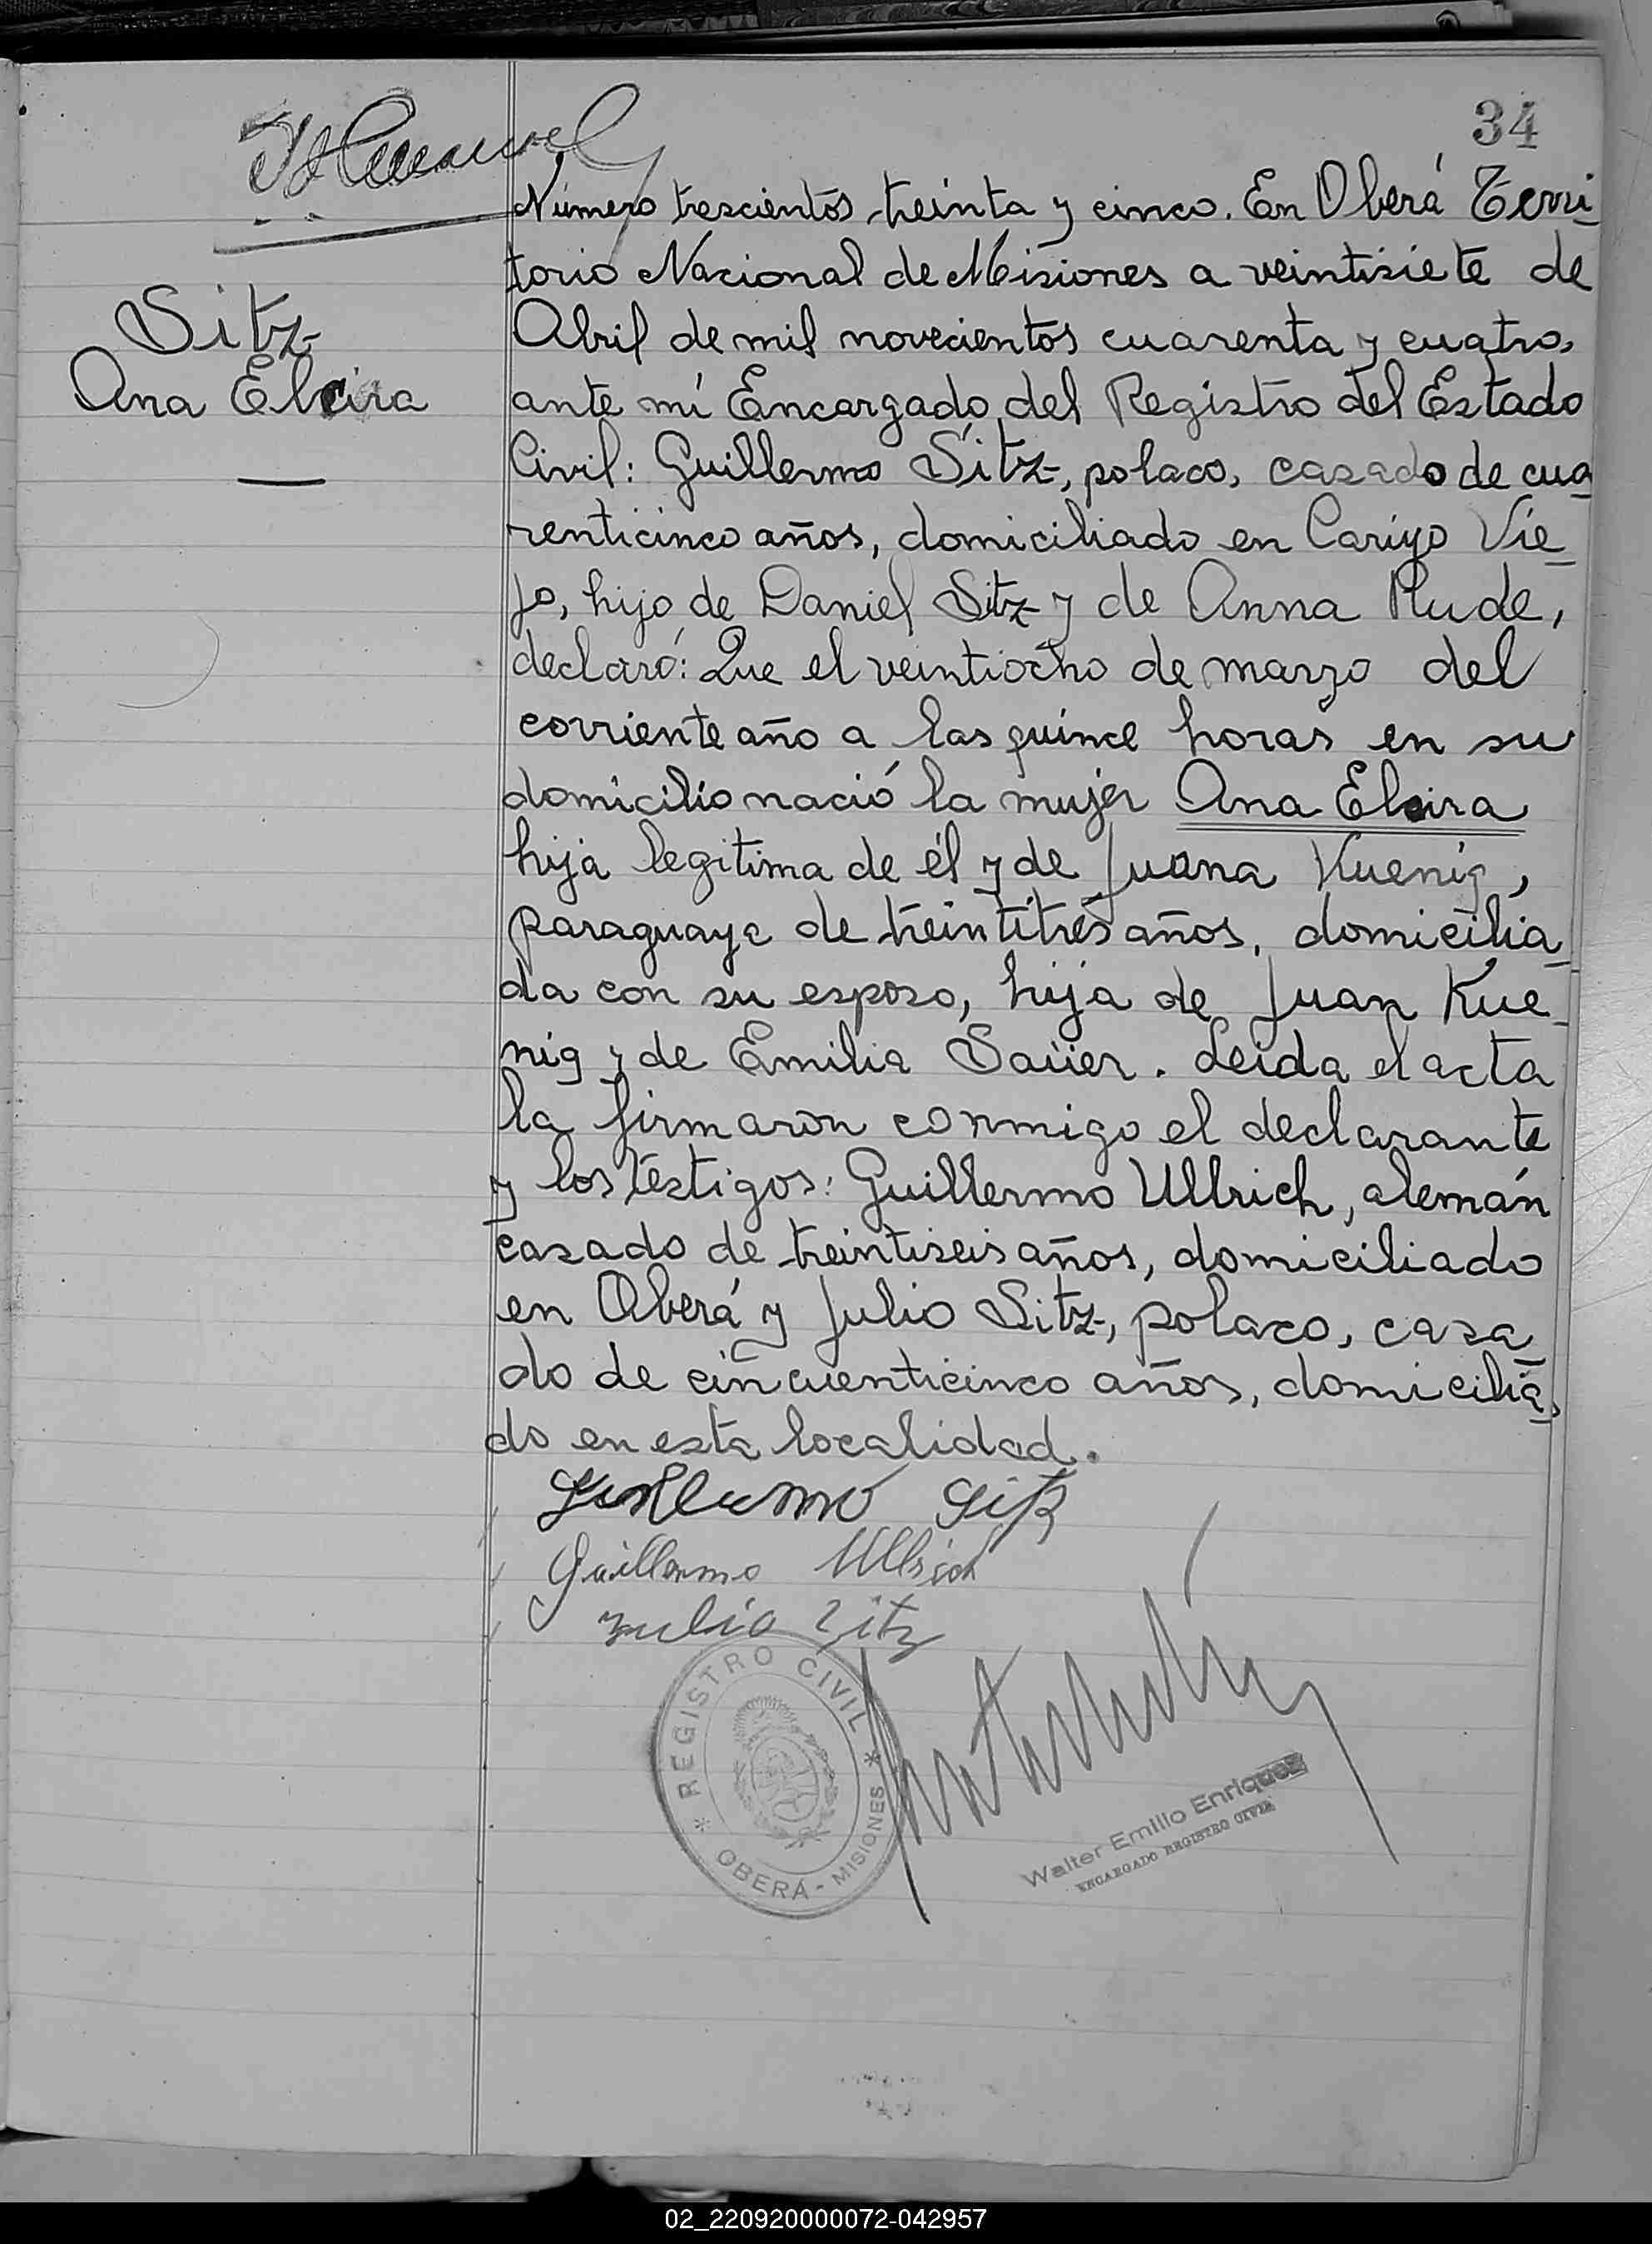 34
Número trescientos treinta y cinco. En Oberá Terri-
torio Nacional de Misiones a veintisiete de
Sitz
Abril de mil novecientos cuarenta y cuatro,
Ana Elcira
ante mí Encargado del Registro del Estado
Civil: Guillermo Sitz, polaco, casado de cua
renticinco años, domiciliado en Variyo Vie-
jo, hijo de Daniel Sitz y de Anna Rude,
declaró: Que el veintiocho de marzo del
corriente año a las quince horas en su
domicilio nació la mujer Ana Elcira
hija legitima de él y de Juana Kuenig,
paraguaya de treintitrés años, domicilia-
da con su esposo, hija de Juan Kue-
nig y de Emilia Saüer. Leida el acta
la firmaron conmigo el declarante
y los testigos: Guillermo Ullrich, alemán
casado de treintiseis años, domiciliado
en Oberá y Julio Sitz, polaco, casa
do de cincuenticinco años, domicilia-
do en esta localidad.
Guillermo Sitz
Guillermo Ullrich
Julio Sitz
* REGISTRO CIVIL * OBERÁ - MISIONES
Walter Emilio Enriquez
ENCARGADO REGISTRO CIVIL
02_220920000072-042957